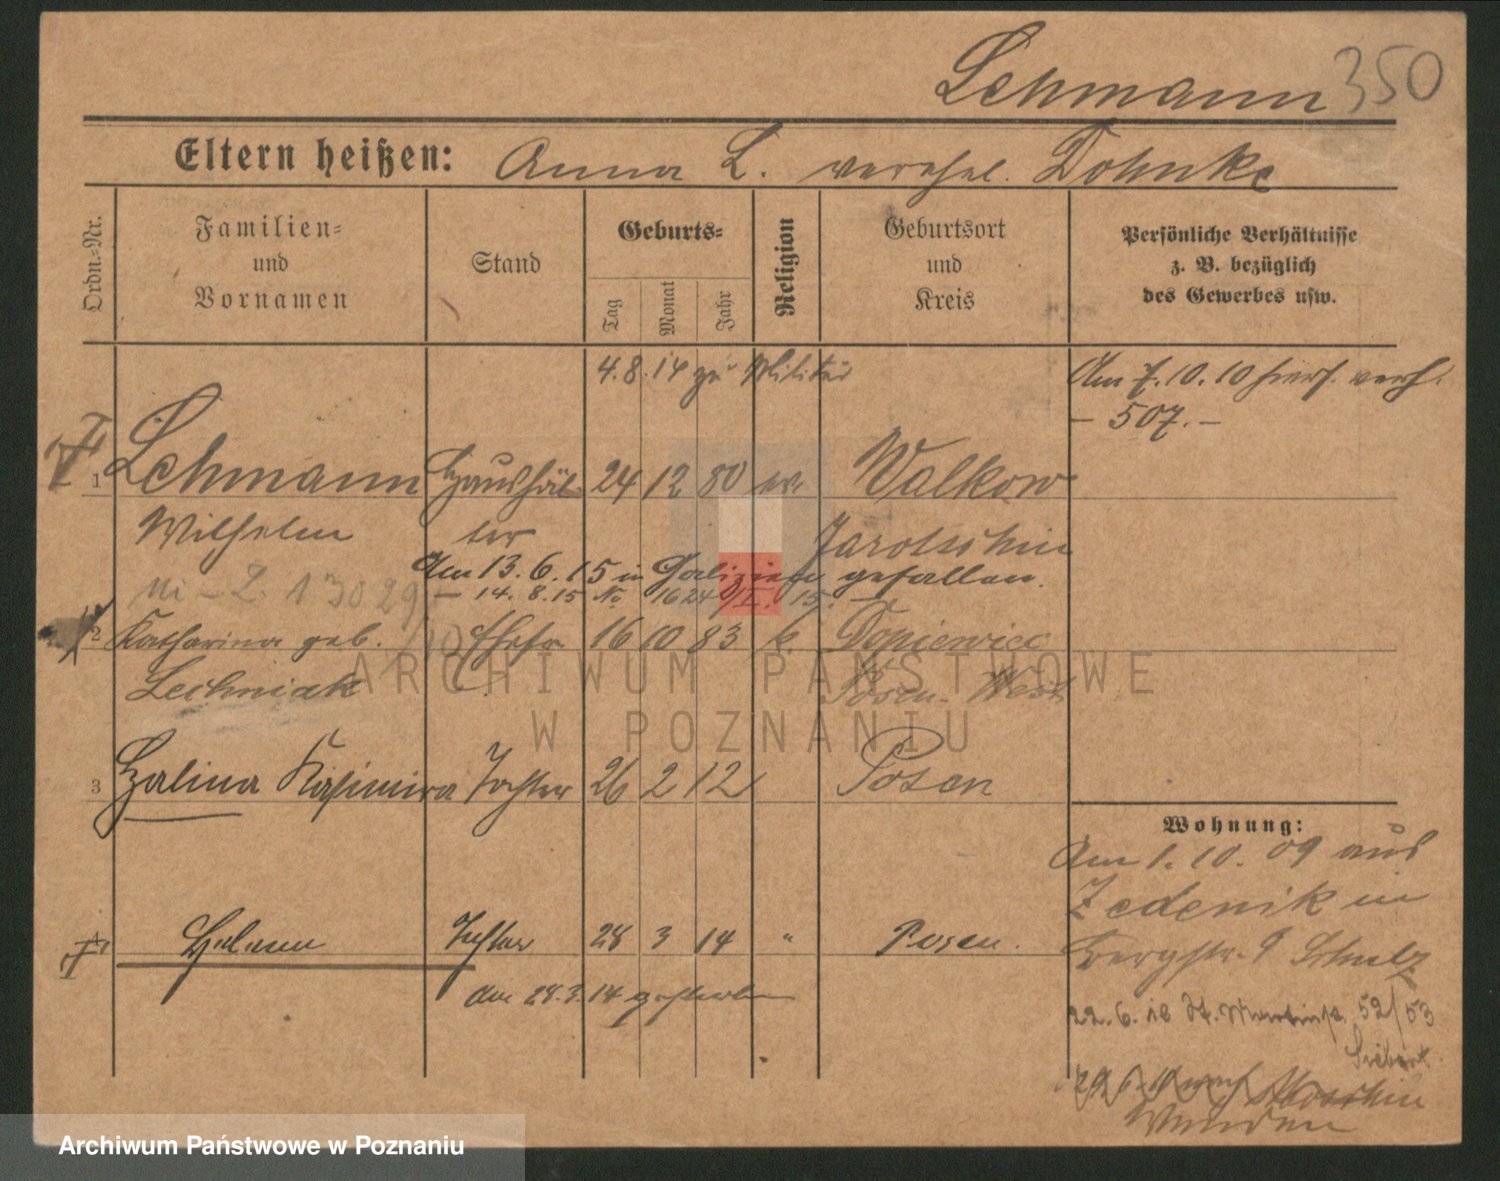 Lehmann 350
Eltern heißen: Anna L. verehel. Dohnke
Ordn.-Nr.
Familien-
und
Vornamen
Stand
Geburts-
Tag
Monat
Jahr
Religion
Geburtsort
und
Kreis
Persönliche Verhältnisse
z. B. bezüglich
des Gewerbes usw.
4.8.14 zu Militär
Am 7.10.10 verh.
- 507. -
1 Lehmann Haushäl- 24 12 80 ev. Walkow
Wilhelm ter Jarotschin
Am 13.6.15 in Galizien gefallen.
- 14. 8. 15 No 1624 /I. 15. -
2 Katharina geb. Ehefr. 16 10 83 k. Dopiewiec
Lechniak Posen-West
3 Halina Kasimira Tochter 26 2 12 Posen
Wohnung:
Am 1.10.09 aus
Zedenik in
Bergstr. 9 Schulz
4 Tochter 28 3 14 " Posen.
am 28.3.14 gestorben
22.6.10 St. Martinstr. 52/53
ARCHIWUM PAŃSTWOWE
W POZNANIU
Archiwum Państwowe w Poznaniu